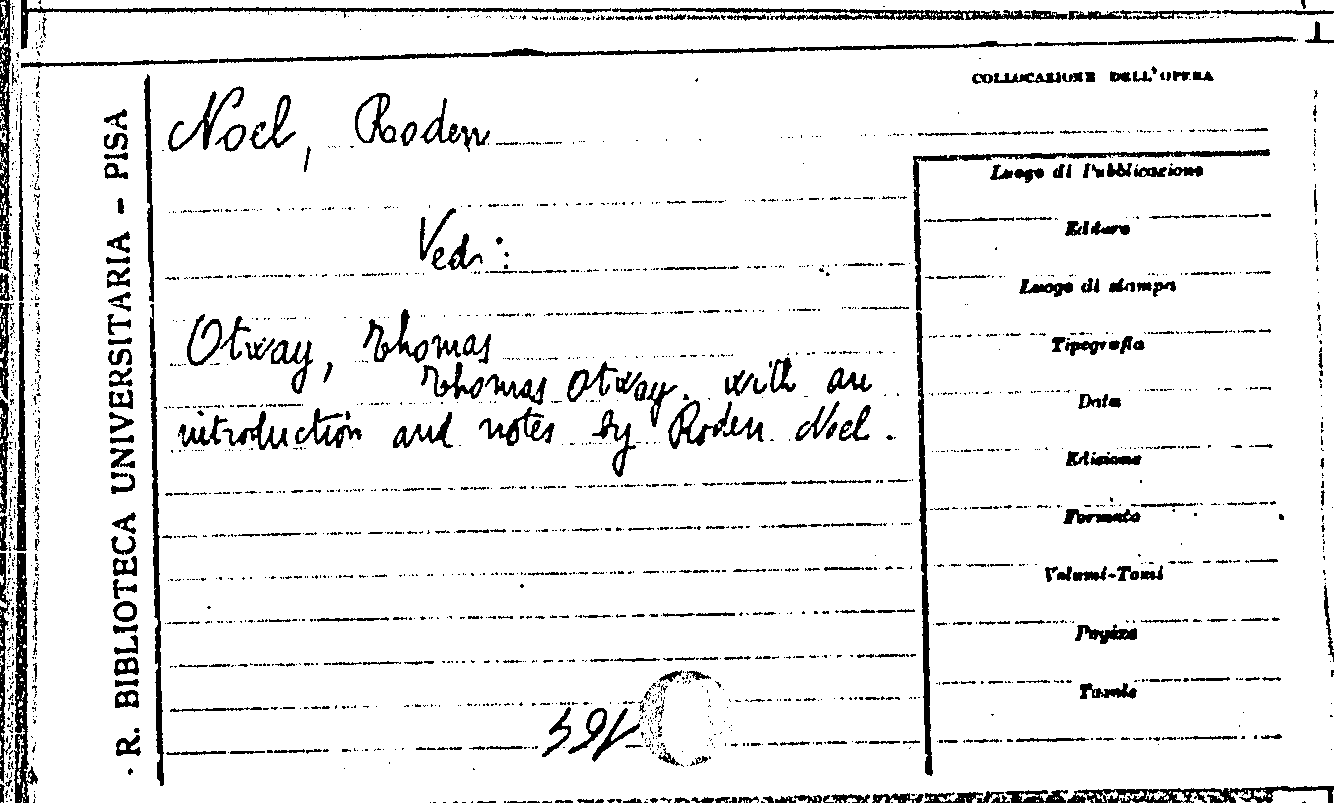 R. BIBLIOTECA UNIVERSITARIA - PISA
COLLOCAZIONE DELL'OPERA
Noel, Roden
Vedi:
Otway, Thomas
Thomas Otway. with an
introduction and notes by Roden Noel.
Luogo di Pubblicazione
Editore
Luogo di stampa
Tipografia
Data
Edizione
Formato
Volumi-Tomi
Pagine
Tavole